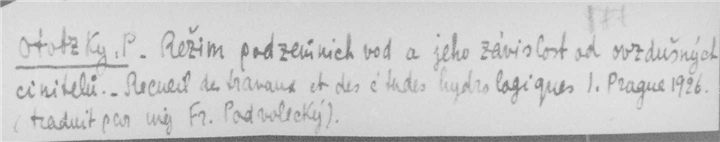 171
Ototzky, P. - Režim podzemních vod a jeho závislost od ovzdušných
činitelů. - Recueil des travaux et des études hydrologiques 1. Prague 1926.
(traduit par ing Fr. Podvolecký).